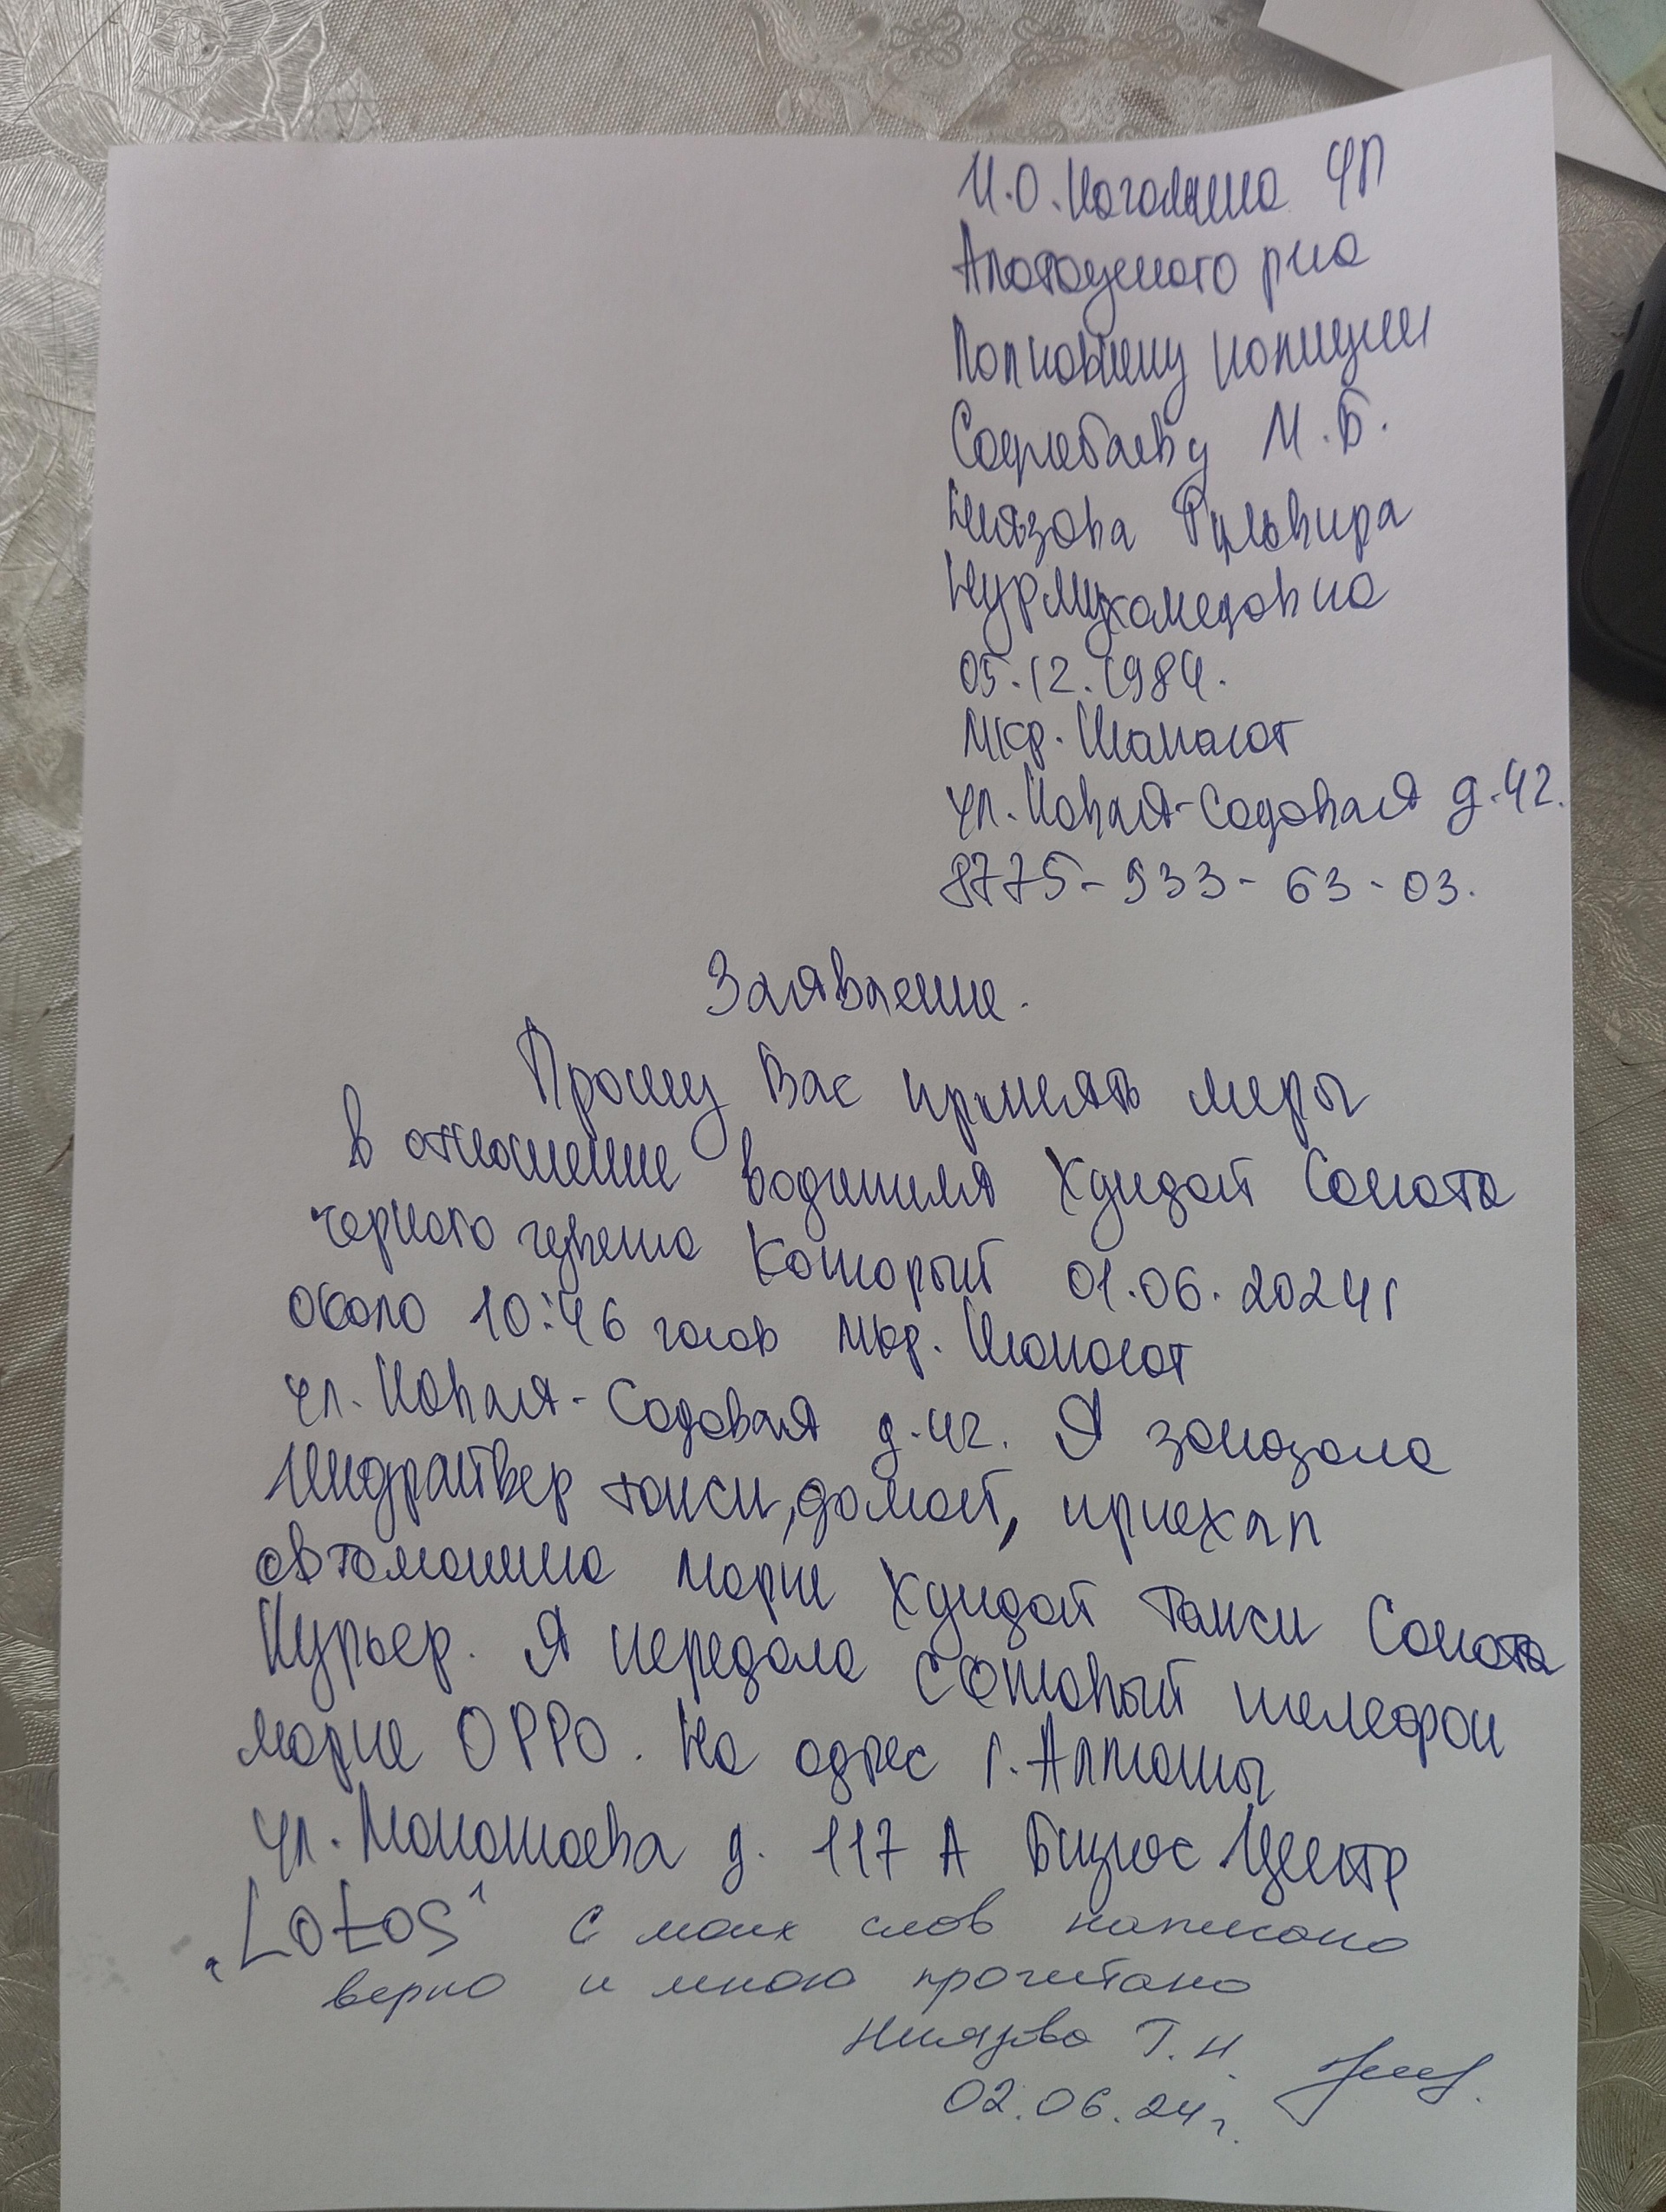 И.О. Начальника УП
Алатауского р-на
Полковнику полиции
Садыбаеву М.Б.
Ниязова Гульвира
Нурмухамедовна
05.12.1984.
мкр. Шанырак
ул. Новая-Садовая д.42.
8775-933-63-03.
Заявление.
Прошу Вас принять меры
в отношение водителя Хундай Соната
черного цвета который 01.06.2024г
около 10:46 часов мкр.
ул. Новая-Садовая д.42. Я заказала
Индрайвер такси, домой, приехал
автомашина марки Хундай такси Соната
Курьер. Я передала сотовый телефон
марки OPPO. На адрес г. Алматы
ул. д. 117 А Бизнес Центр
"LOTOS" С моих слов написано
верно и мною прочитано
Ниязова Г.Н.
02.06.24г.